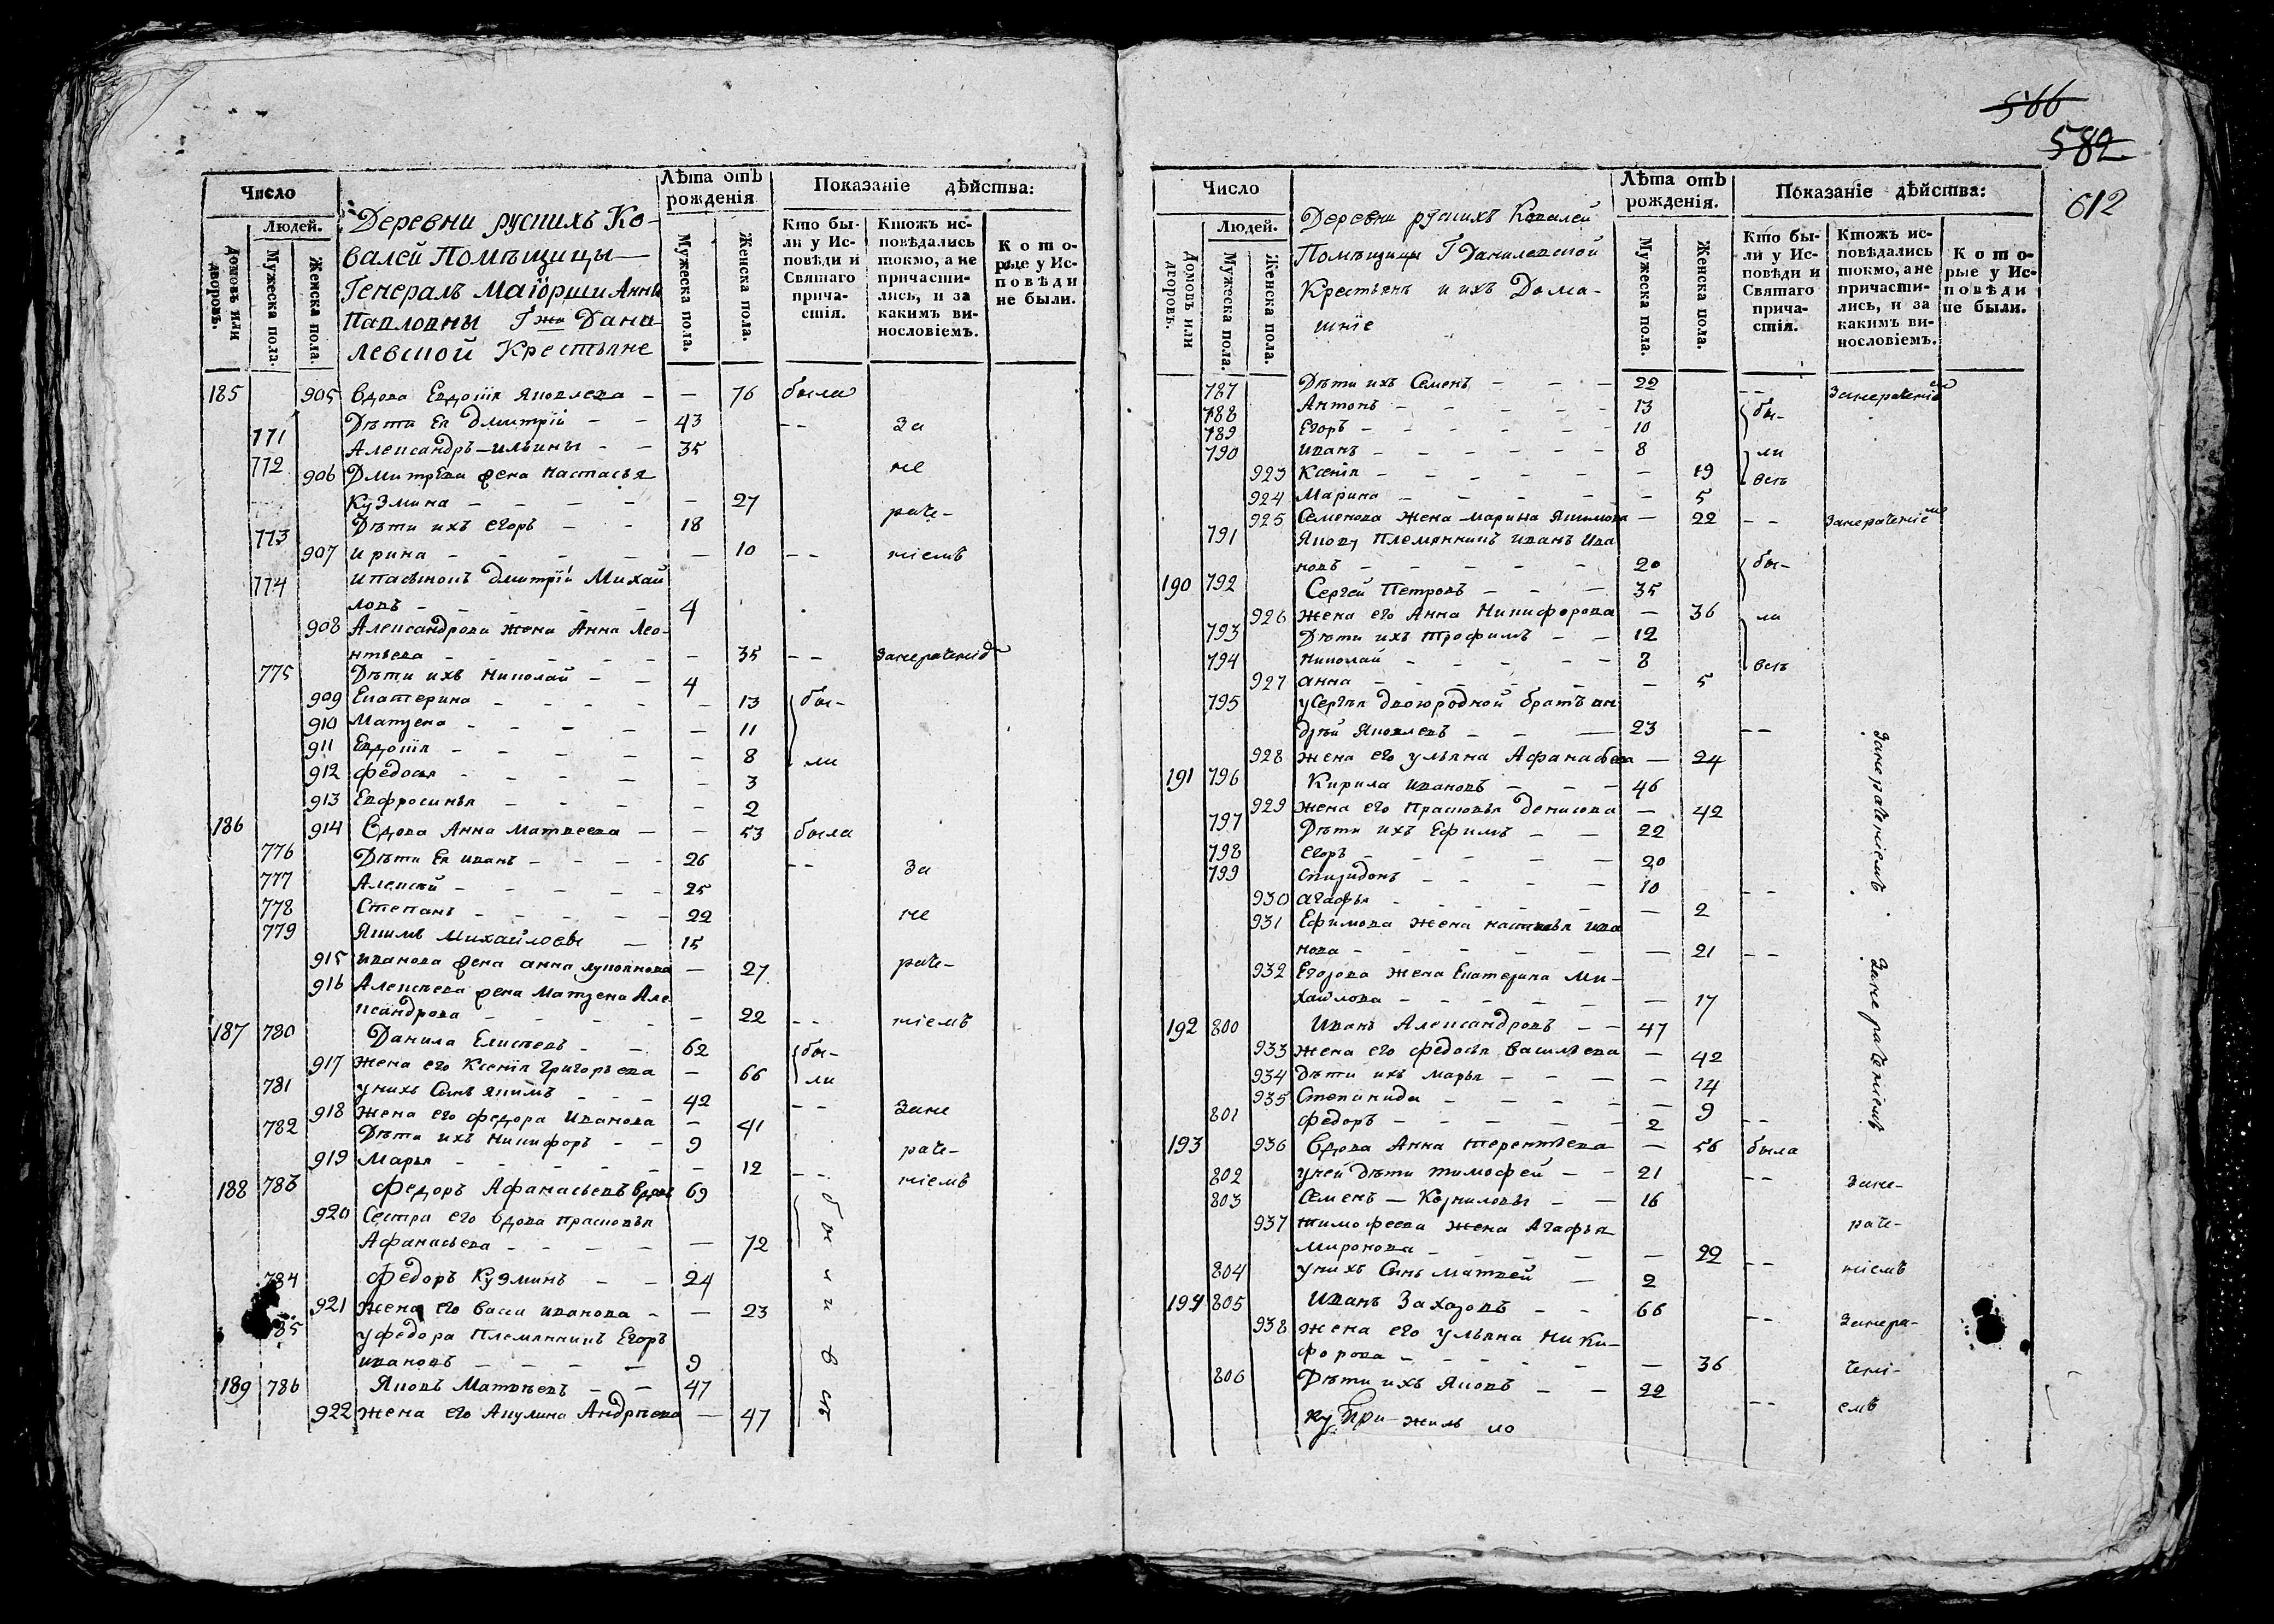 566
582
612
Число
Людей.
Домовъ или дворовъ.
Мужеска пола.
Женска пола.
Деревни рускихъ Ко-
валей Помѣщицы
Генералъ Маіорши Анны
Павловны Гжи Дани-
левской Крестьяне
Лѣта отъ рожденія
Мужеска пола.
Женска пола.
Показаніе дѣйства:
Кто бы-
ли у Ис-
повѣди и
Святаго
прича-
стія.
Ктожъ ис-
повѣдались
токмо, а не
причасти-
лись, и за
какимъ ви-
нословіемъ.
К о т о-
рые у Ис-
п о в ѣ д и
не были.
185 905 Вдова Евдокія Яковлева — — 76 была
771 Дѣти Ея Дмитрій — — 43 -- За
772 Александръ — Ильины — — 35
906 Дмитрева жена Настасья не
Кузмина — — — — — 27
773 Дѣти ихъ Егоръ — — 18 раче-
907 Ирина — — — — — 10 -- ніемъ
774 Ипасынокъ Дмитрій Михай
ловъ — — — — — 4
908 Александрова жена Анна Лео-
нтьева — — — — — 35 -- Занераченіемъ
775 Дѣти ихъ Николай — — 4
909 Екатерина — — — — 13 бы-
910 Матрена — — — — 11
911 Евдокія — — — — 8 ли
912 Федосья — — — — 3
913 Евфросинья — — — 2
186 914 Вдова Анна Матвеева — — 53 была
776 Дѣти Ея Иванъ — — — 26 -- За
777 Алексѣй — — — — 25
778 Степанъ — — — — 22 не
779 Якимъ Михайловы — 15
915 Иванова жена Анна Лукоянова — 27 раче-
916 Алексѣева жена Матрена Але
ксандрова — — — — 22 -- ніемъ
187 780 Данила Елисѣевъ — — 62 бы-
917 Жена его Ксенія Григорьева — 66 ли
781 унихъ Сынъ Якимъ — — 42 -- Зане
918 Жена его Федора Иванова — 41
782 Дѣти ихъ Никифоръ — — 9 раче-
919 Марья — — — — — 12 -- ніемъ
188 783 Федоръ Афанасьевъ Вдовъ 69
920 Сестра его Вдова Прасковья
Афанасьева — — — — — 72
784 Федоръ Кузминъ — — 24
921 Жена его Васса Иванова — — 23
785 уФедора Племянникъ Егоръ
Ивановъ — — — — 9
189 786 Яковъ Матвѣевъ — — 47
922 Жена его Акулина Андреева — 47
Число
Людей.
Домовъ или дворовъ.
Мужеска пола.
Женска пола.
Деревни рускихъ Ковалей
Помѣщицы Г Данилевской
Крестьянъ и ихъ Дома-
шніе
Лѣта отъ рожденія.
Мужеска пола.
Женска пола.
Показаніе дѣйства:
Кто бы-
ли у Ис-
повѣди и
Святаго
прича-
стія.
Ктожъ ис-
повѣдались
токмо, а не
причасти-
лись, и за
какимъ ви-
нословіемъ.
К о т о-
рые у Ис-
п о в ѣ д и
не были.
787 Дѣти ихъ Семенъ — — — 22 -- Занераченіемъ
788 Антонъ — — — — — 13 бы-
789 Егоръ — — — — — 10
790 Иванъ — — — — — 8 ли
923 Ксенія — — — — — 19 всѣ
924 Марина — — — — — 5
925 Семенова Жена Марина Якимова — 22 -- Занераченіемъ
791 Якову Племянникъ Иванъ Ива
новъ — — — — — 20 бы-
190 792 Сергей Петровъ — — — 35
926 Жена его Анна Никифорова — 36 ли
793 Дѣти ихъ Трофимъ — — 12
794 Николай — — — — — 8 всѣ
927 Анна — — — — — 5
795 уСергѣя двоюродной братъ Ан
дрѣй Яковлевъ — — — 23 --
928 Жена его Ульяна Афанасьева — 24
191 796 Кирила Ивановъ — — — 46
929 Жена его Прасковья Денисова — 42
797 Дѣти ихъ Ефимъ — — 22 Занераченіемъ
798 Егоръ — — — — — 20
799 Спиридонъ — — — — 10 --
930 Агафья — — — — — 2
931 Ефимова Жена Настасья Ива
нова — — — — — 21 --
932 Егорова Жена Екатерина Ми-
хайлова — — — — — 17
192 800 Иванъ Александровъ — — 47 Занераченіемъ
933 Жена его Федосья Васильева — 42
934 Дѣти ихъ Марья — — — 14
935 Степанида — — — — 9
801 Федоръ — — — — — 2 --
193 936 Вдова Анна Терентьева — 56 была
802 уней Дѣти Тимофей — — 21 -- Зане-
803 Семенъ — Корниловы — — 16
937 Тимофеева Жена Агафья раче-
Миронова — — — — — 22 --
804 унихъ Сынъ Матвей — 2 ніемъ
194 805 Иванъ Захаровъ — — 66 --
938 Жена его Ульяна Ники- Занера-
форова — — — — — 36
806 Дѣти ихъ Яковъ — — 22 чені-
-- емъ